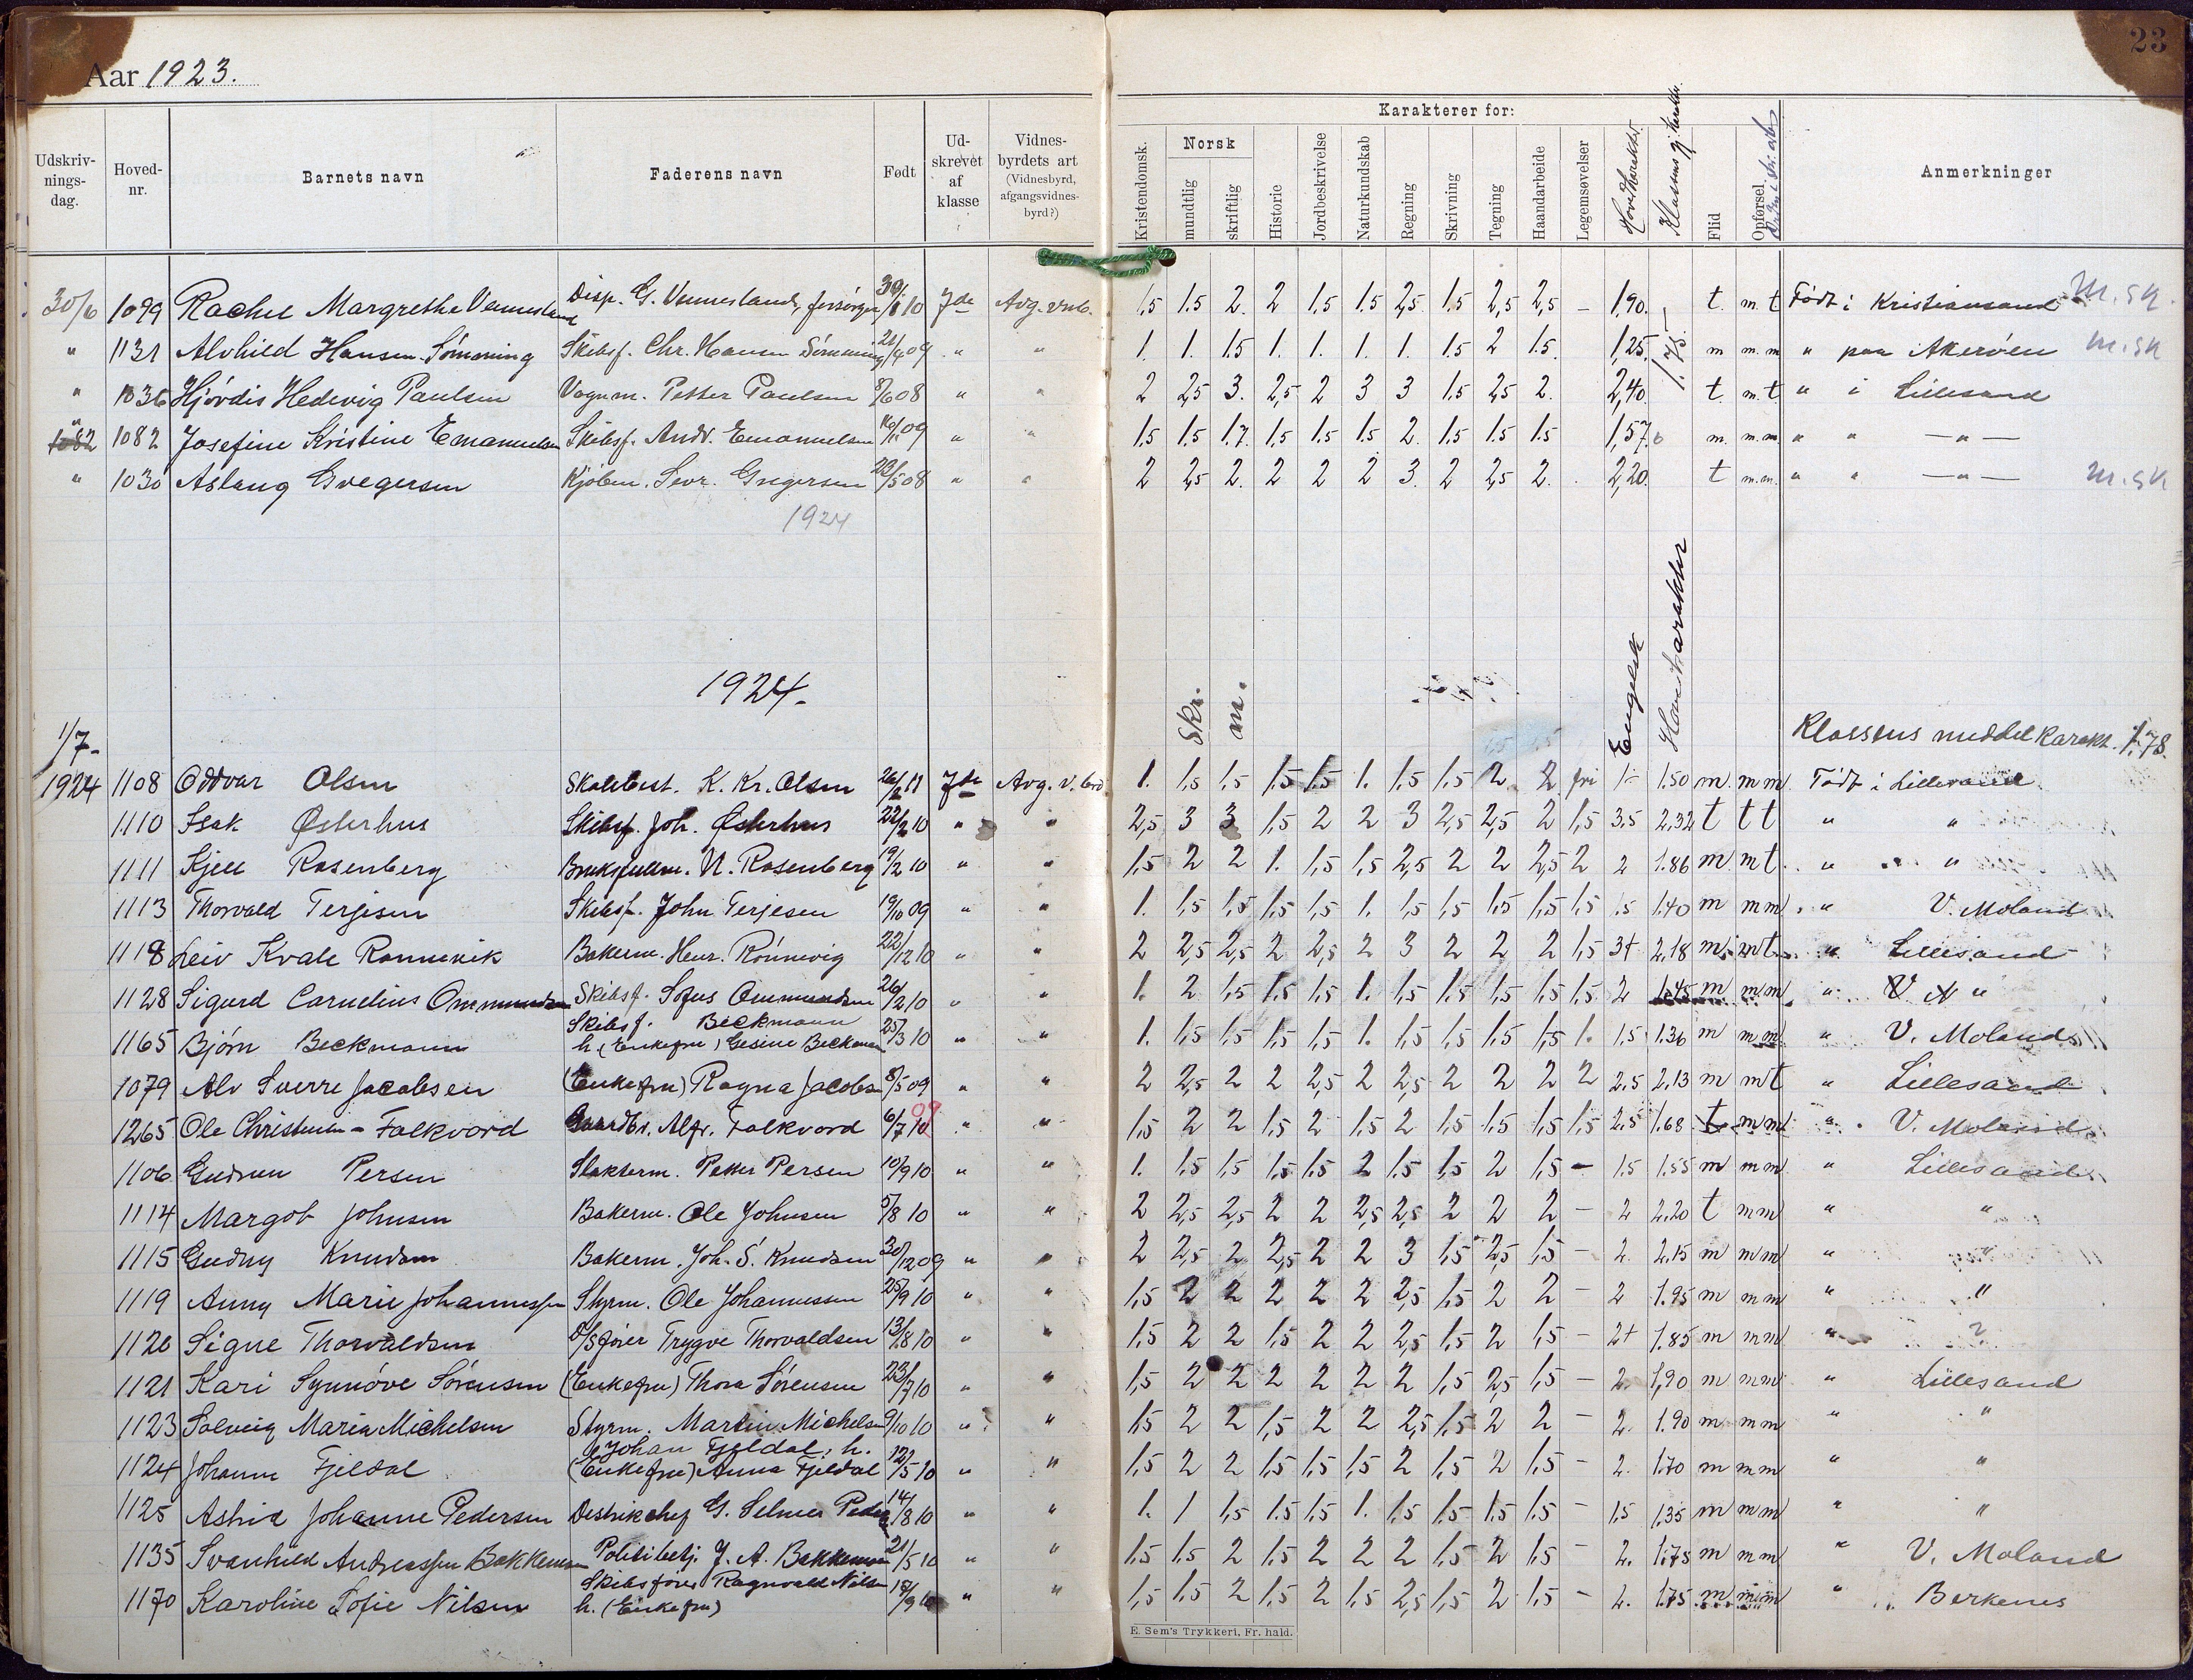 Aar 1923.
23
Udskriv-
nings-
dag.
Hoved-
nr.
Barnets navn
Faderens navn
Født
Ud-
skrevet
af
klasse
Vidnes-
byrdets art
(Vidnesbyrd,
afgangsvidnes-
byrd?)
Karakterer for:
Kristendomsk.
Norsk
mundtlig
skriftlig
Historie
Jordbeskrivelse
Naturkundskab
Regning
Skrivning
Tegning
Haandarbeide
Legemsøvelser
Hovedkarakter
Klassens gj. karakter
Flid
Opførsel
Orden i skr. arb.
Anmerkninger
30/6 1099 Rachel Margrethe Vennesland Disp. G. Vennesland, forsørger 30/1 10 7de Avg. vnb. 1,5 1.5 2. 2 1,5 1.5 2,5 1.5 2,5 2,5 – 1,90. t. m. t Født i Kristiansand M.sk.
" 1131 Alvhild Hansen-Sømoning Skibsf. Chr. Hansen Sømoning 21/9 09 " " 1 1. 1.5 1. 1. 1. 1. 1.5 2 1.5. 1,25. 1.75 m m. m " paa Akerøen M.sk
" 1036 Hjørdis Hedevig Paulsen Vognm. Petter Paulsen 8/6 08 " " 2 2,5 3. 2,5 2 3 3 1.5 2,5 2. 2,40. t. m. t " i Lillesand
" 1082 1082 Josefine Kristine Emanuelsen Skibsf. Andr. Emanuelsen 16/11 09 " " 1.5 1.5 1.7. 1.5 1.5 1.5 2. 1.5 1.5 1.5 1,57. m. m. m " " — " —
" 1030 Aslaug Gregersen Kjøbm. Sevr. Gregersen 23/5 08 " " 2 2,5 2. 2 2 2 3. 2 2,5 2. 2,20. t m. m. " " — " — M.sk
1924
1924.
Skr.
m.
Engelsk
Hovedkarakter
Klassens middelkarakt. 1.78.
1/7-
1924 1108 Oddvar Olsen Skolebest. K. Kr. Olsen 26/2 11 7de Avg. v. brd 1. 1,5 1,5 1,5 1.5 1. 1,5 1,5 2 2 fri 1- 1.50 m m m Født i Lillesand.
1110 Isak Østerhus Skibsf. Joh. Østerhus 22/2 10 " " 2,5 3 3 1,5 2 2 3 2,5 2,5 2 1,5 3,5 2,32 t t t " "
1111 Kjell Rosenberg Bruksfullm. N. Rosenberg 19/2 10 " " 1,5 2 2 1. 1,5 1,5 2,5 2 2 2,5 2 2 1.86 m m t " "
1113 Thorvald Terjesen Skibsf. John Terjesen 19/10 09 " " 1. 1,5 1,5 1,5 1,5 1. 1,5 1,5 1,5 1,5 1,5 1,5 1.40 m m m " V. Moland
1118 Leiv Kvale Rønnevik Bakerm. Henr. Rønnevig 22/12 10 " " 2 2,5 2,5 2 2,5 2 3 2 2 2 1,5 3+ 2,18 m m t " Lillesand
1128 Sigurd Cornelius Ommundsen Skibsf. Sofus Ommundsen 26/2 10 " " 1. 2 1,5 1,5 1,5 1. 1,5 1,5 1,5 1,5 1,5 2 1.45 m m m " "
1165 Bjørn Beckmann Skibsf. Beckmann
h (Enkefru) Gesine Beckman 25/3 10 " " 1. 1,5 1,5 1,5 1,5 1. 1,5 1,5 1,5 1,5 1. 1.5 1.36 m m m " V. Moland
1079 Alv Sverre Jacobsen (Enkefru) Ragna Jacobsen 8/5 09 " " 2 2,5 2 2 2,5 2 2,5 2 2 2 2 2,5 2,13 m m t " Lillesand
1265 Ole Christensen - Falkvord Gaardbr. Alfr. Falkvord 6/7 10 09 " " 1,5 2 2 1,5 2 1,5 2 1,5 1,5 1,5 1,5 2,5 1.68 t m m " V. Moland
1106 Gudrun Persen Slakterm. Peter Persen 10/9 10 " " 1. 1.5 1,5 1,5 1.5 2 1.5 1,5 2 1,5 – 1.5 1.55 m m m " Lillesand
1114 Margot Johnsen Bakerm. Ole Johnsen 5/8 10 " " 2 2,5 2,5 2 2 2,5 2,5 2 2 2 – 2 2.20 t m m " "
1115 Gudny Knudsen Bakerm. Joh. S. Knudsen 30/12 09 " " 2 2,5 2 2,5 2 2 3 1,5 2,5 1,5 – 2 2,15 m m m " "
1119 Anny Marie Johannessen Styrm. Ole Johannessen 25/9 10 " " 1,5 2 2 2 2 2 2,5 1,5 2 2 – 2 1.95 m m m " "
1120 Signe Thorvaldsen D/S fører Trygve Thorvaldsen 13/8 10 " " 1.5 2 2 1.5 2 2 2,5 1,5 2 1,5 – 2+ 1.85 m m m " ?
1121 Kari Synnøve Sørensen (Enkefru) Thora Sørensen 23/7 10 " " 1,5 2 2 2 2 2 2 1,5 2,5 1,5 – 2. 1,90 m m m " Lillesand
1123 Solveig Maria Michelsen Styrm. Martin Michelsen 9/10 10 " " 1,5 2 2 1,5 2 2 2,5 1,5 2 2 – 2. 1.90 m m m " "
1124 Johanne Fjeldal Johan Fjeldal, h.
(Enkefru) Anna Fjeldal 12/5 10 " " 1,5 2 2 1,5 1,5 1,5 2 1,5 2 1,5 – 2. 1.70 m m m " "
1125 Astrid Johanne Pedersen Destrikchef G. Selmer Peders 14/8 10 " " 1. 1 1,5 1.5 1,5 1. 1,5 1,5 1,5 1,5 – 1,5 1.35 m m m " "
1135 Svanhild Andreassen Bakkemoen Politibetj. J. A. Bakkemoen 21/5 10 " " 1,5 1,5 2 1,5 2 2 2 1,5 2 1,5 – 2. 1.75 m m m " V. Moland
1170 Karoline Sofie Nilsen Skibsfører Ragnvald Nilsen
h. (Enkefru) 18/9 10 " " 1,5 1.5 2 1,5 2 1,5 2,5 1,5 2 1,5 – 2. 1.75 m m m " Berkenes
E. Sem's Trykkeri, Fr. hald.